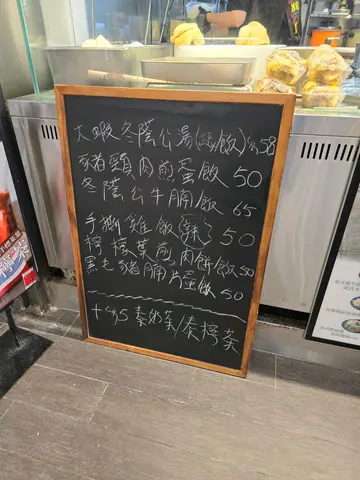 大蝦冬蔭公湯(配飯)$58
豬頸肉煎蛋飯 50
冬蔭公牛腩飯 65
手撕雞飯(辣) 50
檸檬葉煎肉餅飯 50
黑毛豬腩片蛋飯 50
+$5 泰奶茶/泰檸茶